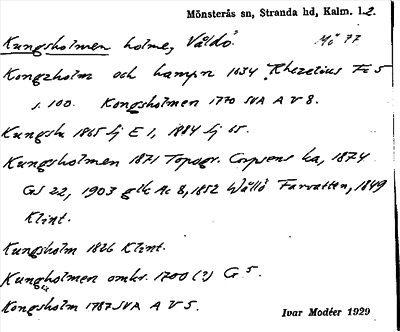 Mönsterås sn, Stranda hd, Kalm. l. 2.
Kungsholmen holme, Våldö. Mö 77
Kongzholm och hampn 1634 Rhezelius Fc 5
s. 100. Kongsholmen 1770 SVA A V 8.
Kungsh. 1865 sj E 1, 1884 sj 65.
Kungsholmen 1871 Topogr. Corpsens ka, 1874
GS 22, 1903 gik Ac 8, 1852 Wållö Farvatten, 1849
Klint.
Kungsholm 1826 Klint.
Kungholmen omkr. 1700 (?) G 5.
Kongsholm 1787 SVA A V 5.
Ivar Modéer 1929